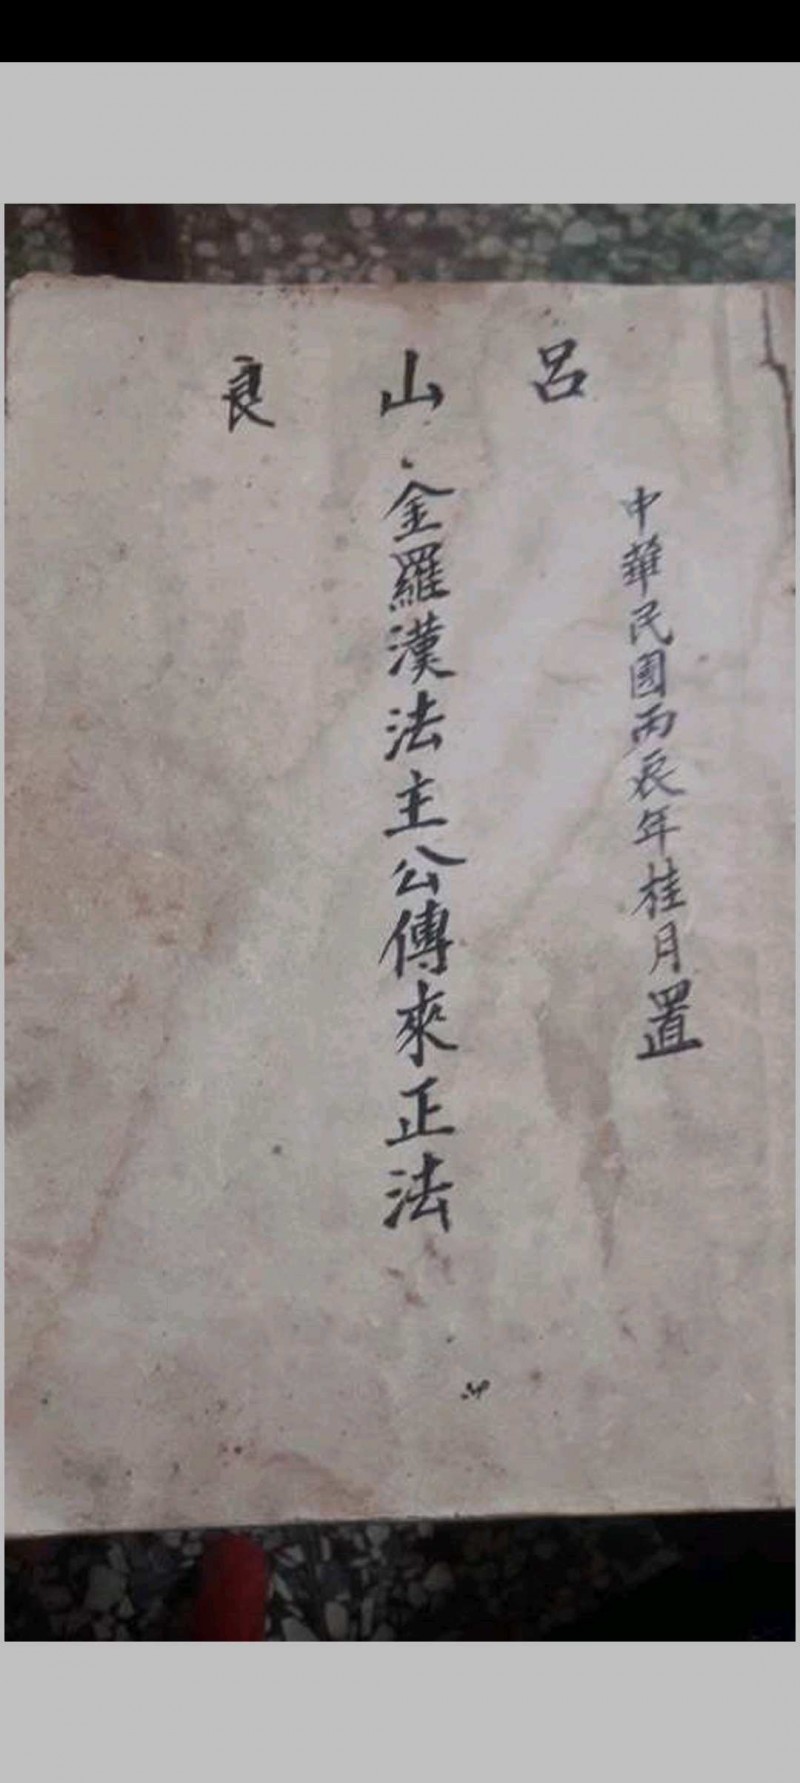 呂山良
中華民國丙辰年桂月置
金羅漢法主公傳來正法